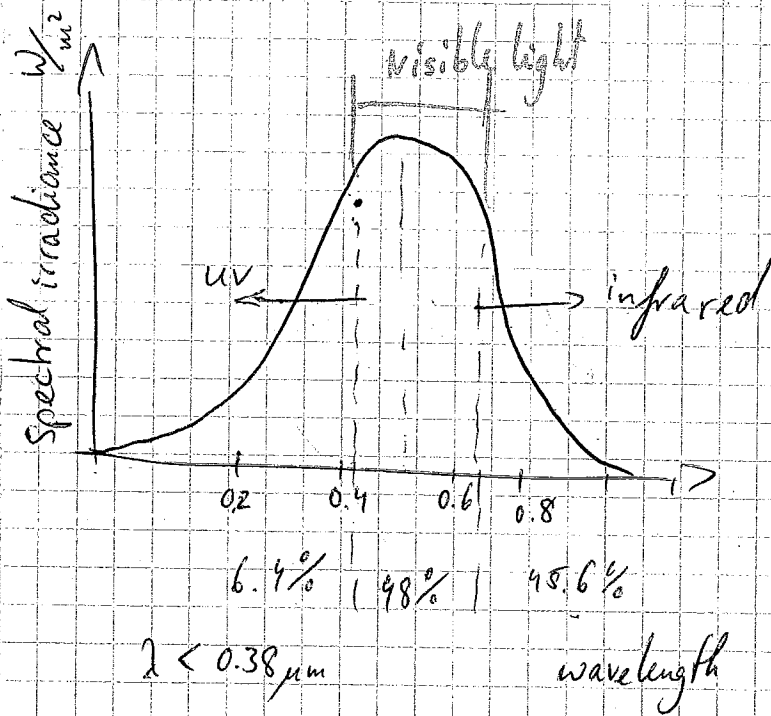 Spectral irradiance W/m²
visible light
UV
infrared
0.2 0.4 0.6 0.8
6.4% 48% 45.6%
λ < 0.38 μm
wavelength